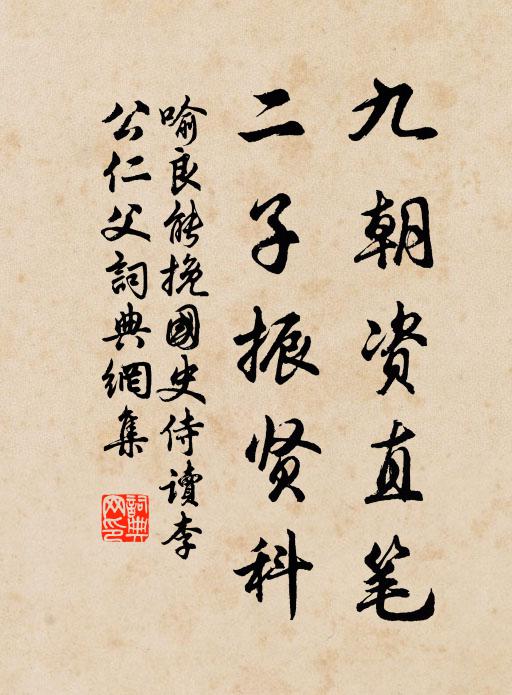 九朝资直笔
二子振贤科
喻良能挽國史侍讀李
公仁父詞典網集
詞典網印